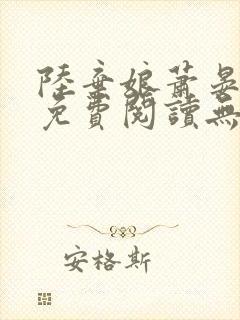 陸棄娘蕭晏
免費閱讀無
安格斯